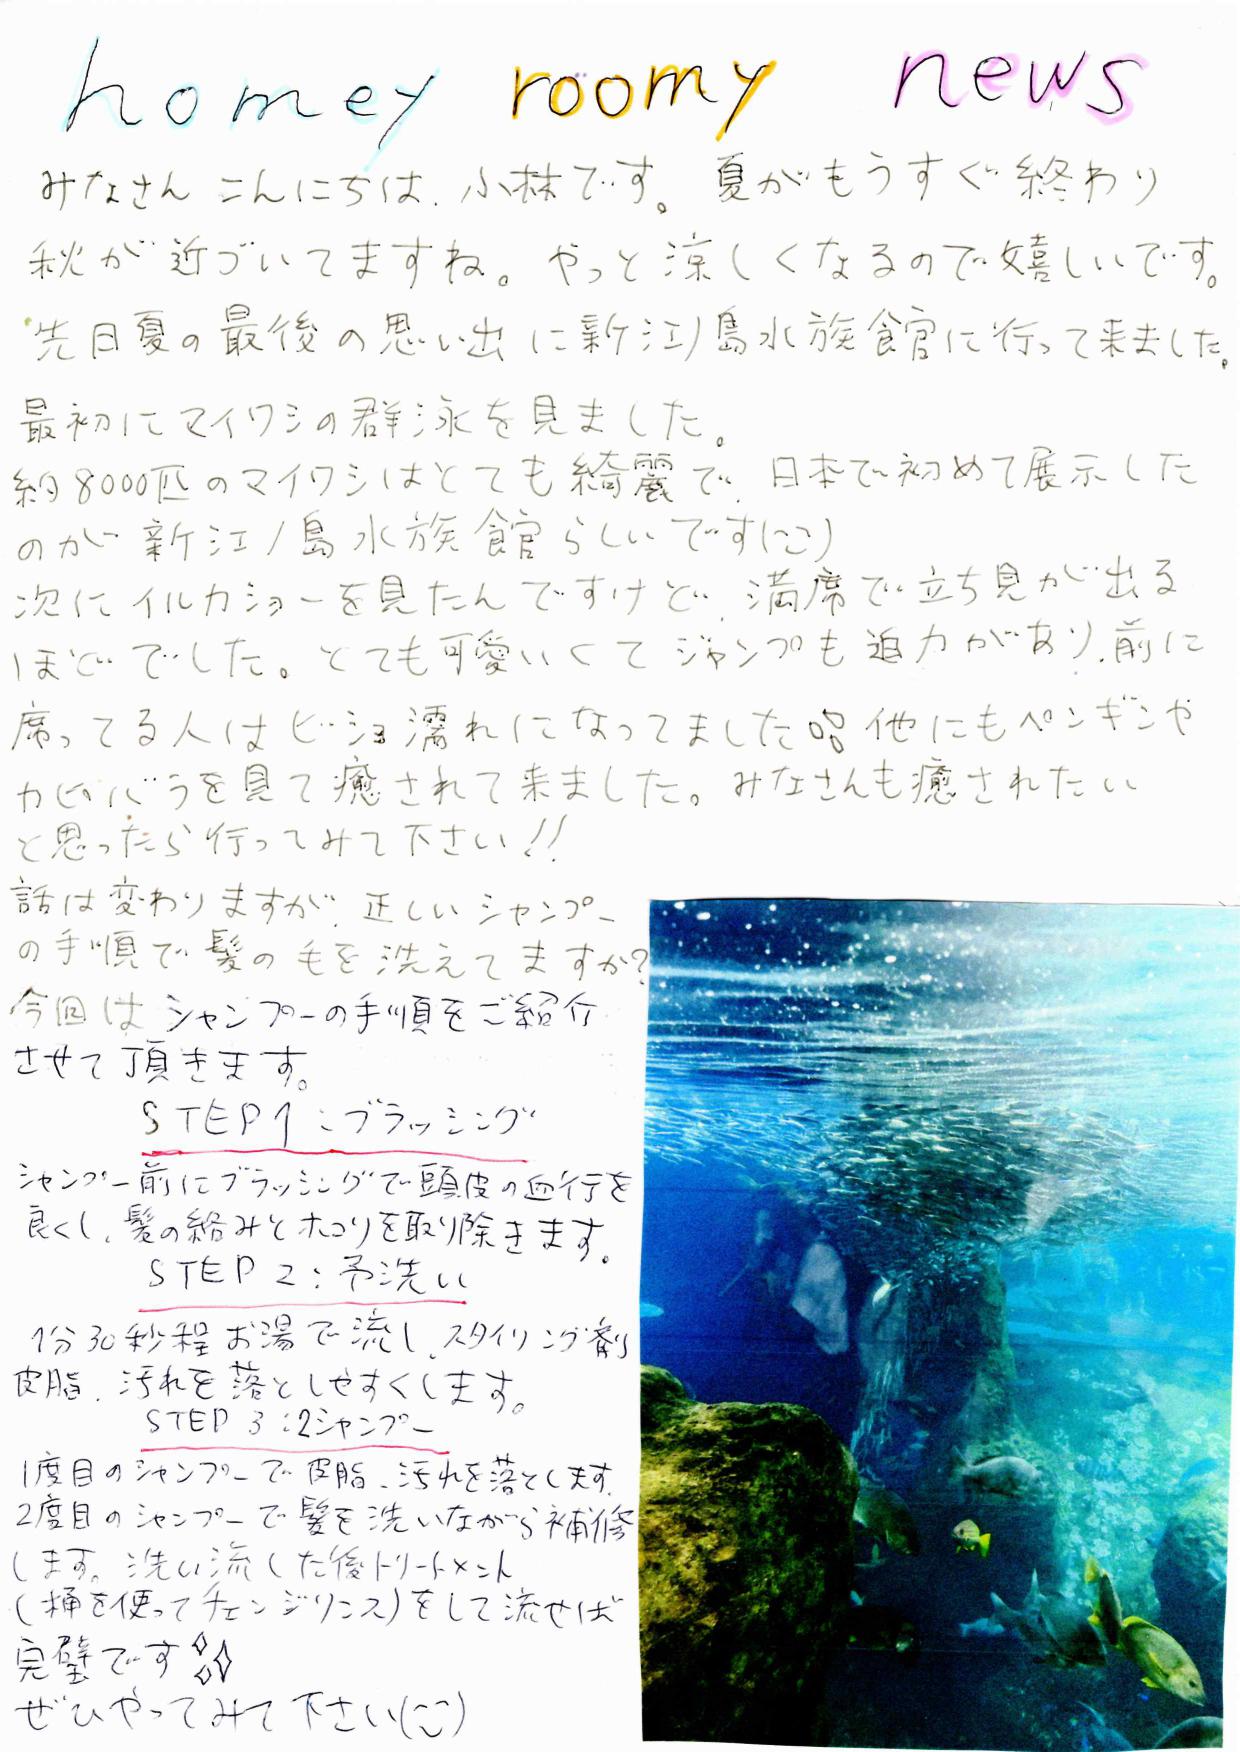 homey roomy news
みなさん こんにちは、小林です。夏がもうすぐ終わり
秋が近づいてますね。やっと涼しくなるので嬉しいです。
先日夏の最後の思い出に新江ノ島水族館に行って来ました。
最初にマイワシの群泳を見ました。
約8000匹のマイワシはとても綺麗で、日本で初めて展示した
のが新江ノ島水族館らしいです(^^)
次にイルカショーを見たんですけど、満席で立ち見が出る
ほどでした。とても可愛いくてジャンプも迫力があり、前に
席ってる人はビショ濡れになってました 他にもペンギンや
カピバラを見て癒されて来ました。みなさんも癒されたい
と思ったら行ってみて下さい!!
話は変わりますが、正しいシャンプー
の手順で髪の毛を洗えてますか?
今回はシャンプーの手順をご紹介
させて頂きます。
STEP1:ブラッシング
シャンプー前にブラッシングで頭皮の血行を
良くし、髪の絡みとホコリを取り除きます。
STEP2:予洗い
1分30秒程お湯で流し、スタイリング剤
皮脂、汚れを落としやすくします。
STEP3:2シャンプー
1度目のシャンプーで皮脂、汚れを落とします。
2度目のシャンプーで髪を洗いながら補修
します。洗い流した後トリートメント
(桶を使ってチェンジリンス)をして流せば
完璧です
ぜひやってみて下さい(^^)